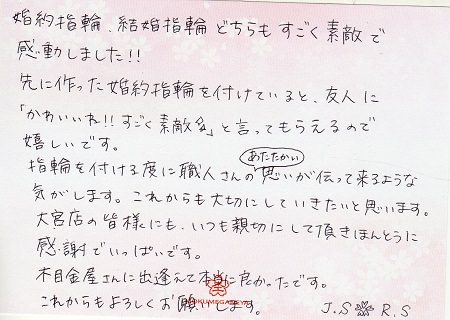 婚約指輪、結婚指輪どちらもすごく素敵で
感動しました!!
先に作った婚約指輪を付けていると、友人に
「かわいいね!!すごく素敵多」と言ってもらえるので
嬉しいです。
指輪を付ける度に職人さんのあたたかい思いが伝って来るような
気がします。これからも大切にしていきたいと思います。
大宮店の皆様にも、いつも親切にして頂きほんとうに
感謝でいっぱいです。
木目金屋さんに出逢えて本当に良かったです。
これからもよろしくお願いします。 J.S R.S
MOKUMEGANEYA